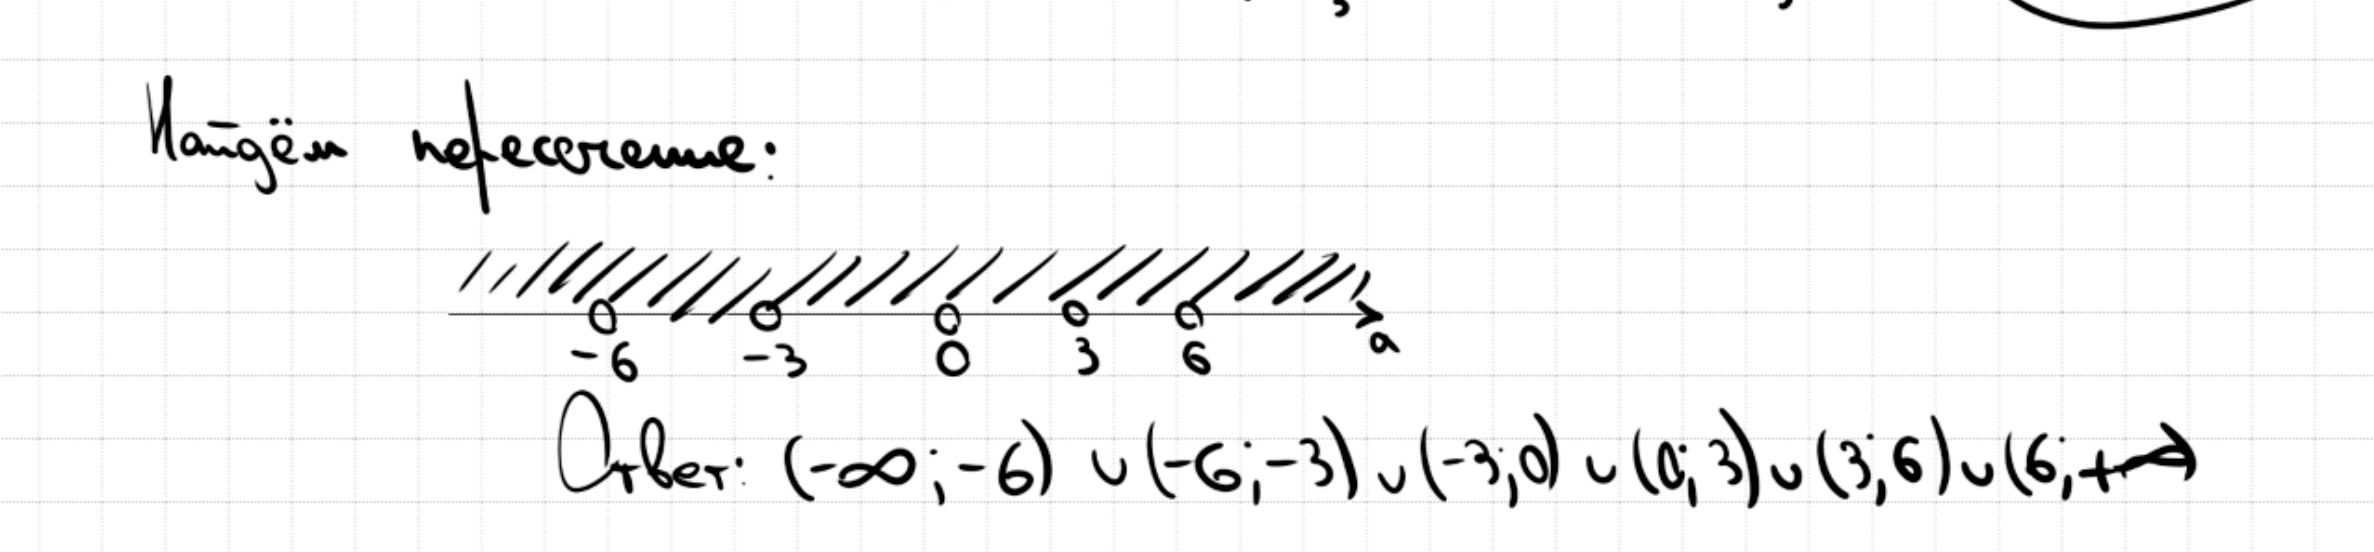 Найдём пересечение:
-6 -3 0 3 6 a
Ответ: (-∞;-6) ∪ (-6;-3) ∪ (-3;0) ∪ (0;3) ∪ (3;6) ∪ (6;+∞)